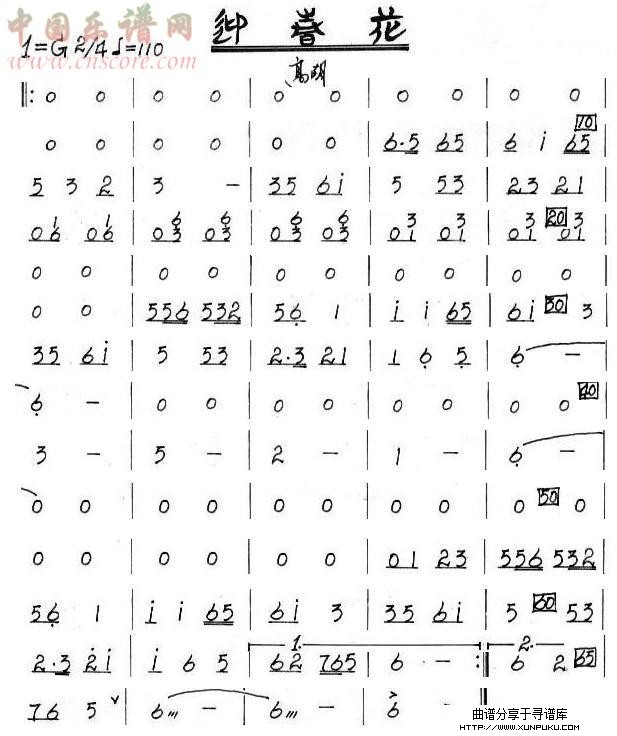 中国乐谱网
www.cnscore.com
1=G 2/4 ♩=110
迎春花
高胡
‖: 0 0 | 0 0 | 0 0 | 0 0 | 0 0
0 0 | 0 0 | 0 0 | 6·5 65 | 6 i 65 [10]
5 3 2 | 3 – | 35 6i | 5 53 | 23 21
0 0 | 0 0 | 0 0 | 0 0 | 0 0
0 0 | 556 532 | 56 1 | i i 65 | 6i [30] 3
35 6i | 5 53 | 2·3 21 | 1 6 5 | 6 –
6 – | 0 0 | 0 0 | 0 0 | 0 0 [40]
3 – | 5 – | 2 – | 1 – | 6 –
0 0 | 0 0 | 0 0 | 0 0 | 0 [50] 0
0 0 | 0 0 | 0 0 | 01 23 | 556 532
56 1 | i i 65 | 6i 3 | 35 6i | 5 [60] 53
1. 2.
2·3 2i | i 6 5 | 62 765 | 6 – :‖ 6 2 [65]
76 5 ∨ | 6 – | 6 – | 6 – ‖
曲谱分享于寻谱库
HTTP://WWW.XUNPUKU.COM